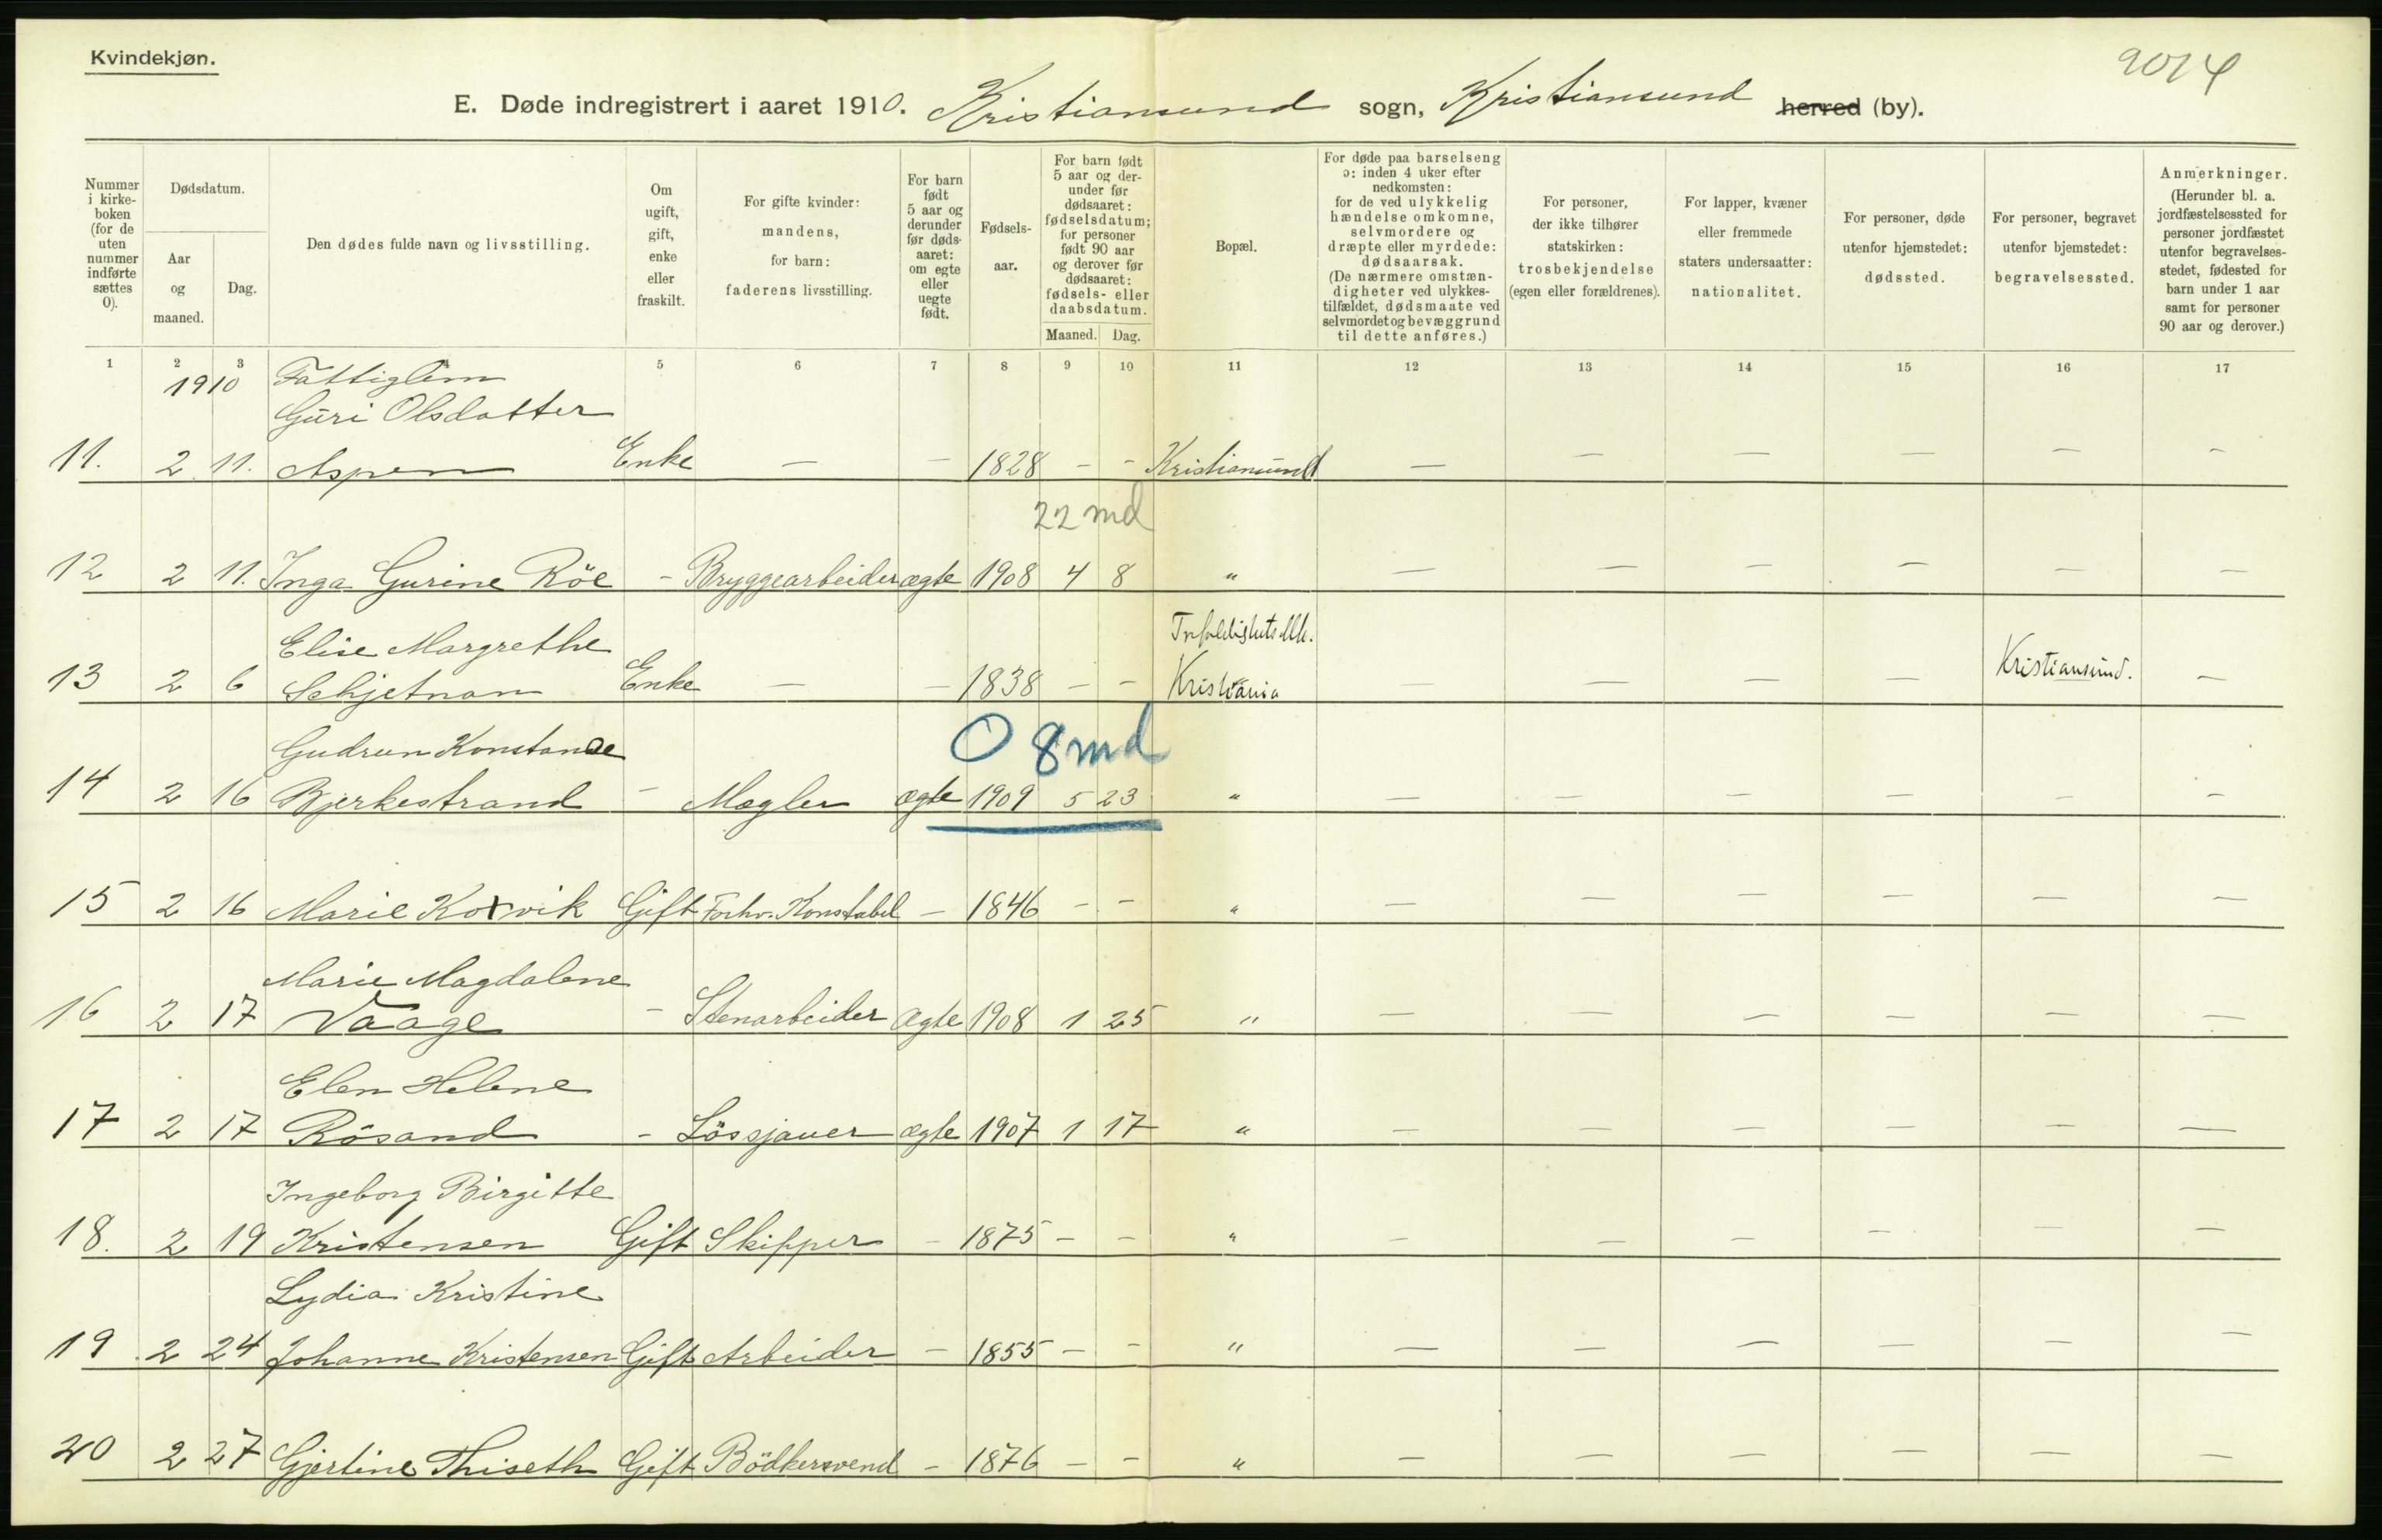 Kvindekjøn.
9014
E. Døde indregistrert i aaret 1910. Kristiansund sogn, Kristiansund herred (by).
Nummer i kirkeboken (for de uten nummer indførte sættes 0).
Dødsdatum.
Aar og maaned.
Dag.
Den dødes fulde navn og livsstilling.
Om ugift, gift, enke eller fraskilt.
For gifte kvinder: mandens, for barn: faderens livsstilling.
For barn født 5 aar og derunder før dødsaaret: om egte eller uegte født.
Fødselsaar.
For barn født 5 aar og derunder før dødsaaret: fødselsdatum; for personer født 90 aar og derover før dødsaaret: fødsels- eller daabsdatum.
Maaned. Dag.
Bopæl.
For døde paa barselseng ɔ: inden 4 uker efter nedkomsten: for de ved ulykkelig hændelse omkomne, selvmordere og dræpte eller myrdede: dødsaarsak. (De nærmere omstændigheter ved ulykkestilfældet, dødsmaate ved selvmordet og bevæggrund til dette anføres.)
For personer, der ikke tilhører statskirken: trosbekjendelse (egen eller forældrenes).
For lapper, kvæner eller fremmede staters undersaatter: nationalitet.
For personer, døde utenfor hjemstedet: dødssted.
For personer, begravet utenfor bjemstedet: begravelsessted.
Anmerkninger. (Herunder bl. a. jordfæstelsessted for personer jordfæstet utenfor begravelsesstedet, fødested for barn under 1 aar samt for personer 90 aar og derover.)
1 2 3 5 6 7 8 9 10 11 12 13 14 15 16 17
1910 Fattiglem
Guri Olsdatter
11. 2 11. Aspen Enke — — 1828 - - Kristiansund — — — — — -
22 md
12 2 11. Inga Gurine Röe - Bryggearbeider ægte 1908 4 8 " — — — — — —
Elise Margrethe
13 2 6 Schjetnan Enke — — 1838 - - Kristiania — — — — Kristiansund. —
Gudrun Konstanse
0 8 md
14 2 16 Bjerkestrand - Mægler ægte 1909 5 23 " — — — — - -
15 2 16 Marie Korvik Gift Forhv. Konstabel — 1846 - - " — — — — — —
Marie Magdalene
16 2 17 Vaage - Stenarbeider ægte 1908 1 25 " — — — — — —
Elen Helene
17 2 17 Rösand - Lössjauer ægte 1907 1 17 " — — — — — —
Ingeborg Birgitte
18. 2 19 Kristensen Gift Skipper - 1875 - - " — — — — — —
Lydia Kristine
19 2 24 Johanne Kristensen Gift Arbeider — 1855 - - " — — — — — —
20 2 27 Gjertine Thiseth Gift Bödkersvend - 1876 - - " — — — — — —